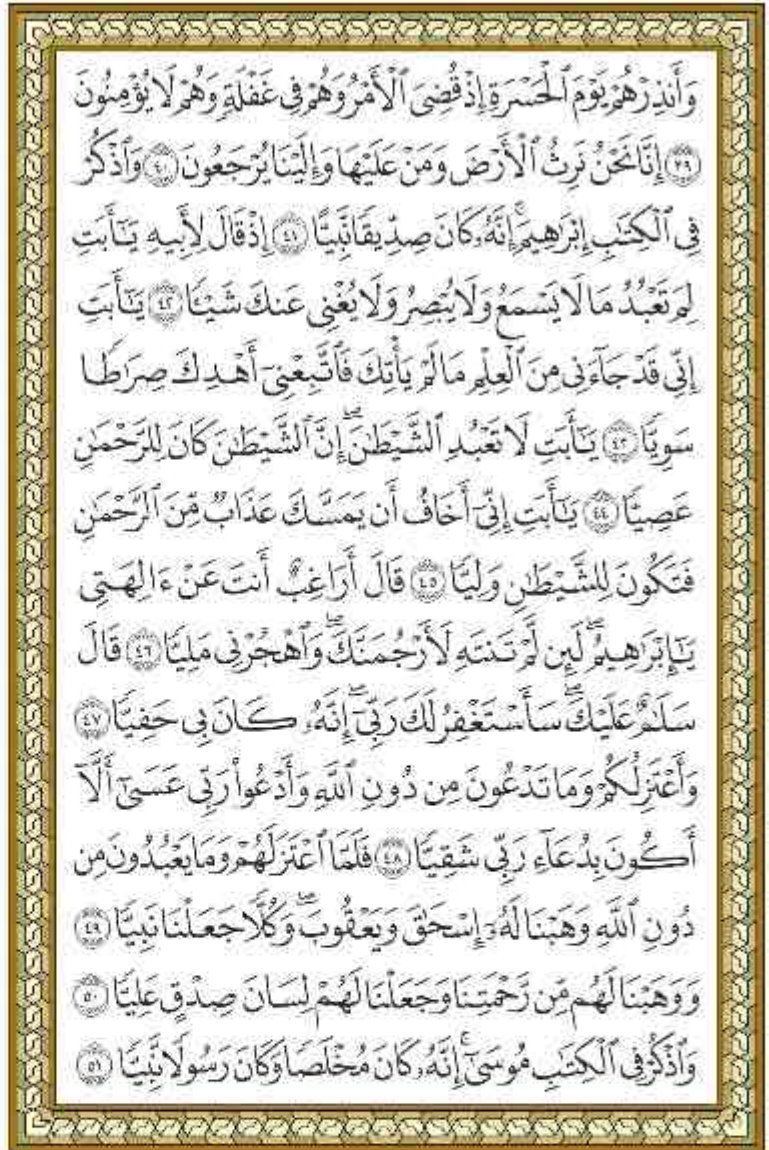 وَأَنذِرْهُمْ يَوْمَ ٱلْحَسْرَةِ إِذْ قُضِىَ ٱلْأَمْرُ وَهُمْ فِى غَفْلَةٍ وَهُمْ لَا يُؤْمِنُونَ
﴿٣٩﴾ إِنَّا نَحْنُ نَرِثُ ٱلْأَرْضَ وَمَنْ عَلَيْهَا وَإِلَيْنَا يُرْجَعُونَ ﴿٤٠﴾ وَٱذْكُرْ
فِى ٱلْكِتَٰبِ إِبْرَٰهِيمَ ۚ إِنَّهُۥ كَانَ صِدِّيقًا نَّبِيًّا ﴿٤١﴾ إِذْ قَالَ لِأَبِيهِ يَٰٓأَبَتِ
لِمَ تَعْبُدُ مَا لَا يَسْمَعُ وَلَا يُبْصِرُ وَلَا يُغْنِى عَنكَ شَيْـًٔا ﴿٤٢﴾ يَٰٓأَبَتِ
إِنِّى قَدْ جَآءَنِى مِنَ ٱلْعِلْمِ مَا لَمْ يَأْتِكَ فَٱتَّبِعْنِىٓ أَهْدِكَ صِرَٰطًا
سَوِيًّا ﴿٤٣﴾ يَٰٓأَبَتِ لَا تَعْبُدِ ٱلشَّيْطَٰنَ ۖ إِنَّ ٱلشَّيْطَٰنَ كَانَ لِلرَّحْمَٰنِ
عَصِيًّا ﴿٤٤﴾ يَٰٓأَبَتِ إِنِّىٓ أَخَافُ أَن يَمَسَّكَ عَذَابٌ مِّنَ ٱلرَّحْمَٰنِ
فَتَكُونَ لِلشَّيْطَٰنِ وَلِيًّا ﴿٤٥﴾ قَالَ أَرَاغِبٌ أَنتَ عَنْ ءَالِهَتِى
يَٰٓإِبْرَٰهِيمُ ۖ لَئِن لَّمْ تَنتَهِ لَأَرْجُمَنَّكَ ۖ وَٱهْجُرْنِى مَلِيًّا ﴿٤٦﴾ قَالَ
سَلَٰمٌ عَلَيْكَ ۖ سَأَسْتَغْفِرُ لَكَ رَبِّىٓ ۖ إِنَّهُۥ كَانَ بِى حَفِيًّا ﴿٤٧﴾
وَأَعْتَزِلُكُمْ وَمَا تَدْعُونَ مِن دُونِ ٱللَّهِ وَأَدْعُوا۟ رَبِّى عَسَىٰٓ أَلَّآ
أَكُونَ بِدُعَآءِ رَبِّى شَقِيًّا ﴿٤٨﴾ فَلَمَّا ٱعْتَزَلَهُمْ وَمَا يَعْبُدُونَ مِن
دُونِ ٱللَّهِ وَهَبْنَا لَهُۥٓ إِسْحَٰقَ وَيَعْقُوبَ ۖ وَكُلًّا جَعَلْنَا نَبِيًّا ﴿٤٩﴾
وَوَهَبْنَا لَهُم مِّن رَّحْمَتِنَا وَجَعَلْنَا لَهُمْ لِسَانَ صِدْقٍ عَلِيًّا ﴿٥٠﴾
وَٱذْكُرْ فِى ٱلْكِتَٰبِ مُوسَىٰٓ ۚ إِنَّهُۥ كَانَ مُخْلَصًا وَكَانَ رَسُولًا نَّبِيًّا ﴿٥١﴾